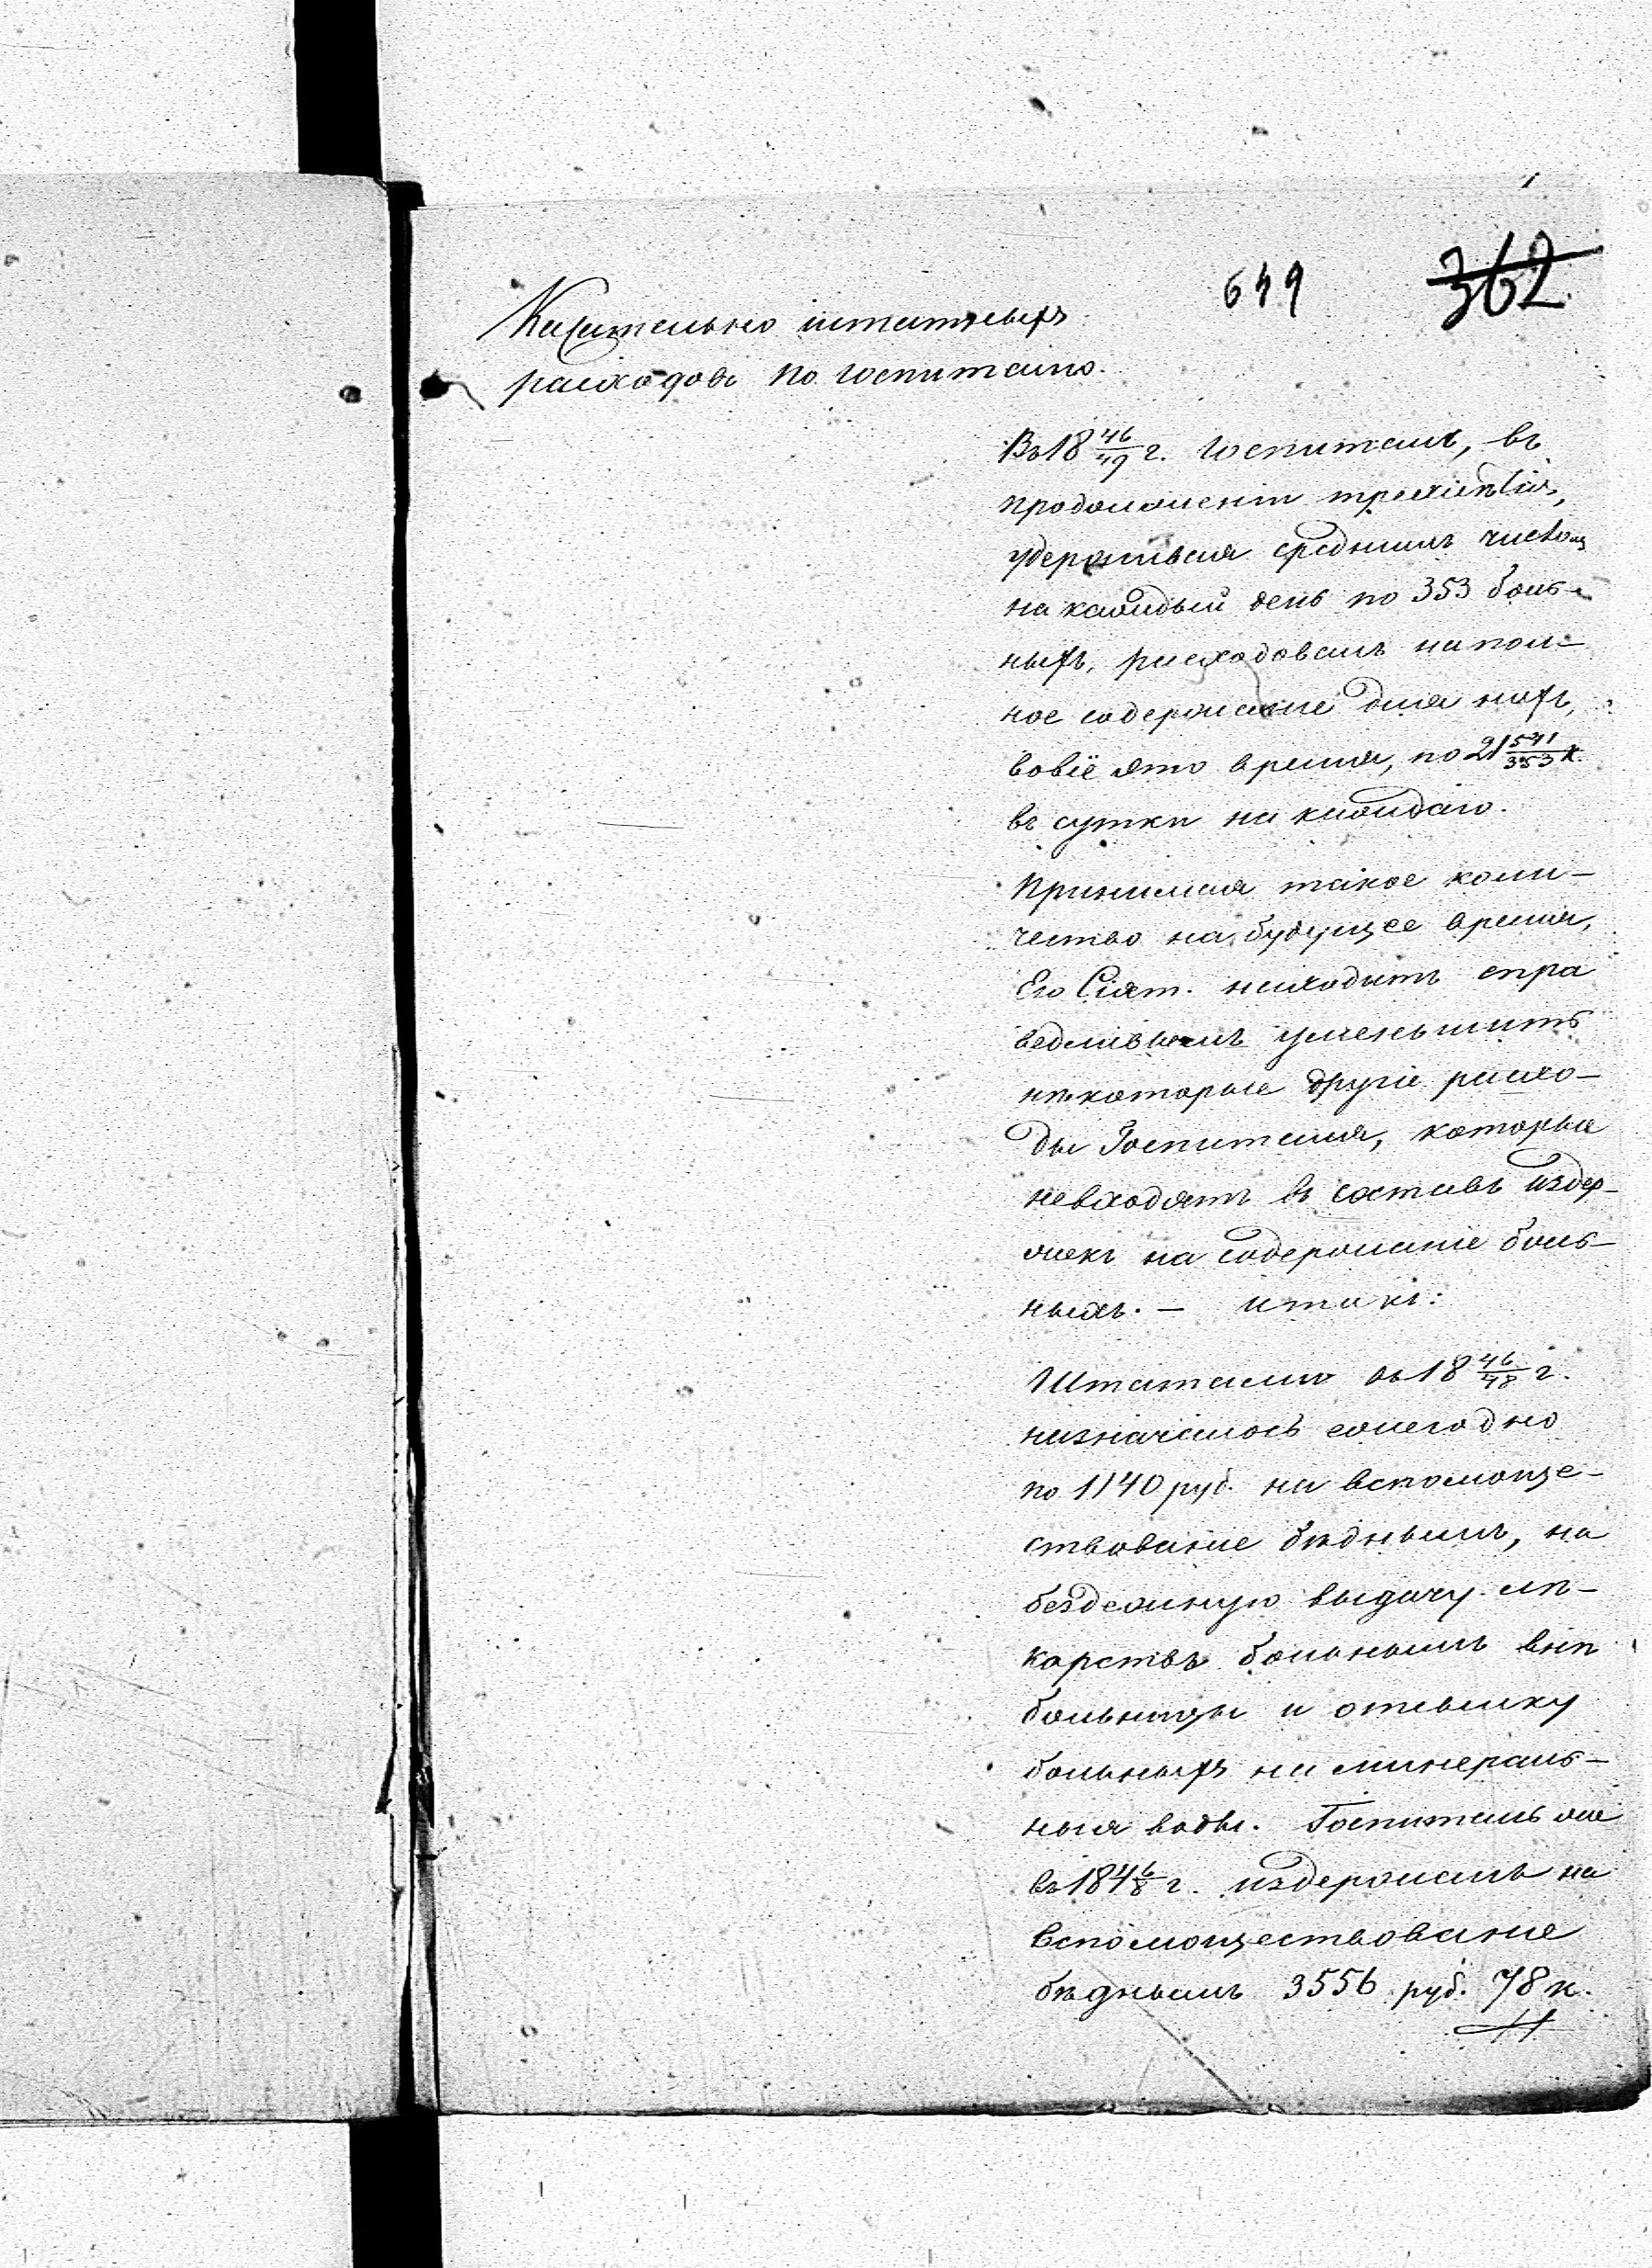 649 362
Касательно штатныхъ
расходовъ по госпиталю.
Въ 18 46/49 г. Госпиталь, въ
продолженіи трехлѣтія,
удерживая среднимъ числомъ
на каждый день по 353 боль-
ныхъ, расходовалъ на пол-
ное содержаніе для нихъ,
вовсё это время, по 21 541/353 к.
въ сутки на каждаго.
Принимая такое коли-
чество на будущее время,
Его Сіят. находитъ спра
ведливымъ уменьшить
нѣкоторые другіе расхо-
ды Госпиталя, которые
невходятъ въ составъ издер-
жекъ на содержаніе боль-
ныхъ. — итакъ:
Штатами въ 18 46/48 г.
назначалось ежегодно
по 1140 руб. на вспомоще-
ствованіе бѣднымъ, на
бездежную выдачу лѣ-
карствъ больнымъ внѣ
больницы и отсылку
больныхъ на минераль-
ныя воды. Госпиталь же
въ 184 6/8 г. издержалъ на
вспомоществованіе
бѣднымъ 3556 руб. 78 к.